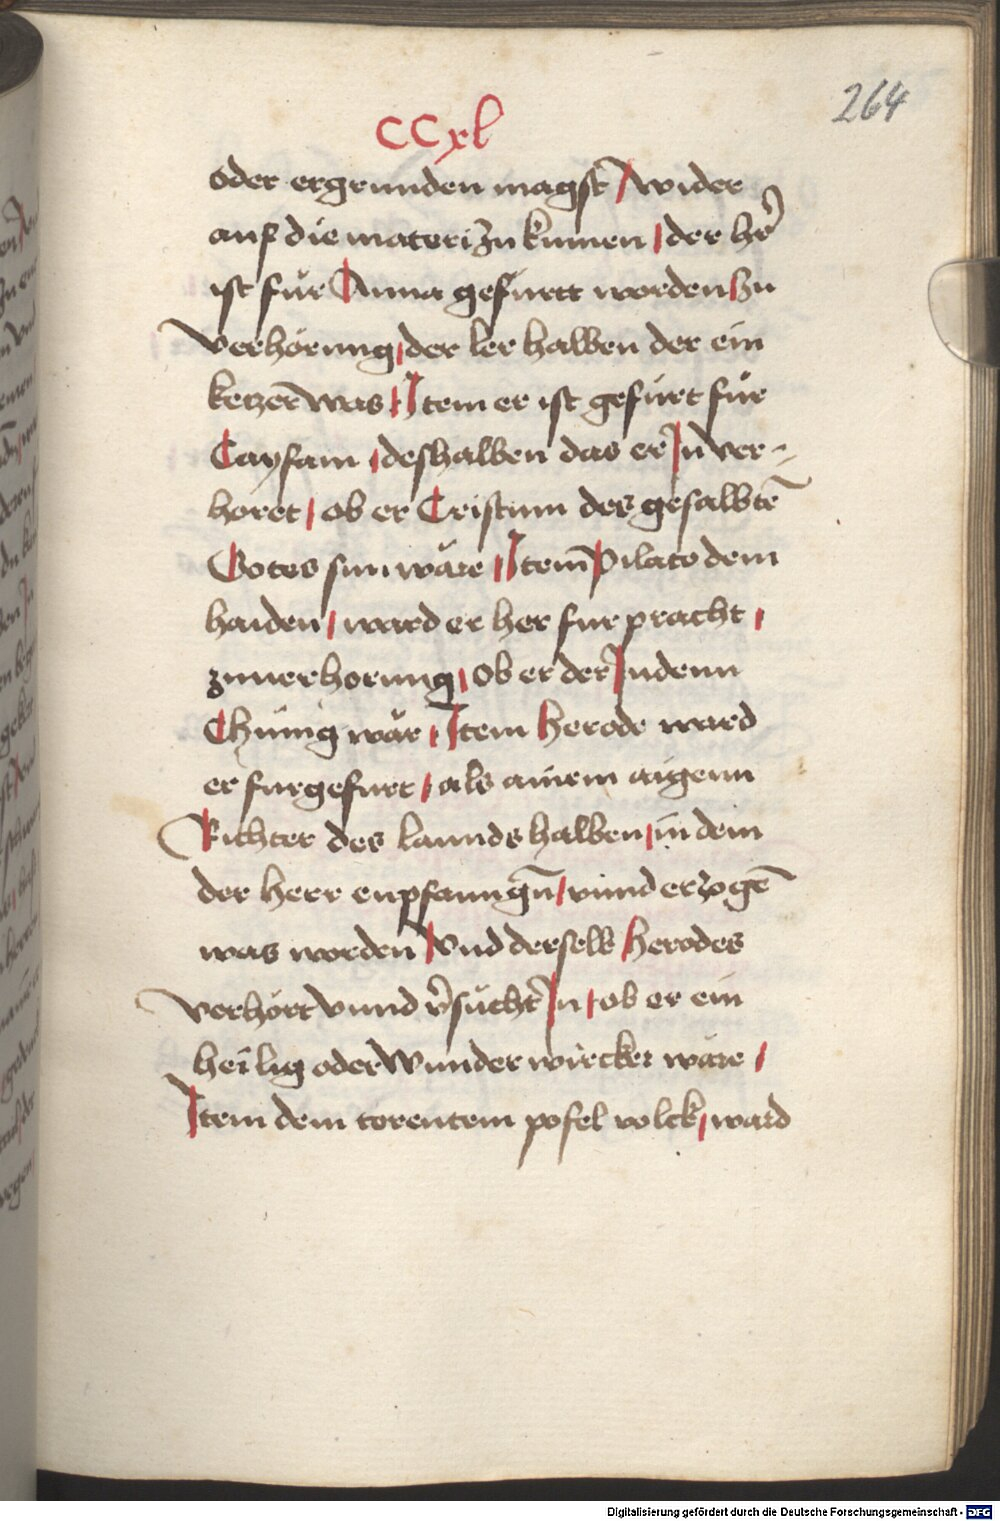 264
CCxl
oder ergrunden magst / wider
auf die materi zu kumen / der hr̃
ist für Anna gefürtt worden zu
verhörung / der ler halben der ein
ketzer̃ was / Item er ist gefürt für
Cayfam / deshalben das er In ver-
höret / ob er Cristum des gesalbtẽ
Gotes sun wäre / Item Pilato dem
haiden / ward er her fur pracht /
zuuerhorung / Ob er der Iudenn
Chünig wär / Item Herode ward
er furgefurt / als ainem aigenn
Richter des lannds halben / in dem
der herr enpfanngñ / vnnd erzogẽ
was worden / Vnd derselb Herodes
verhört vnnd v̾sücht In / ob er ein
heilig oder Wunder wircker wäre /
Item dem torentem pofel volck / ward
Digitalisierung gefördert durch die Deutsche Forschungsgemeinschaft - DFG